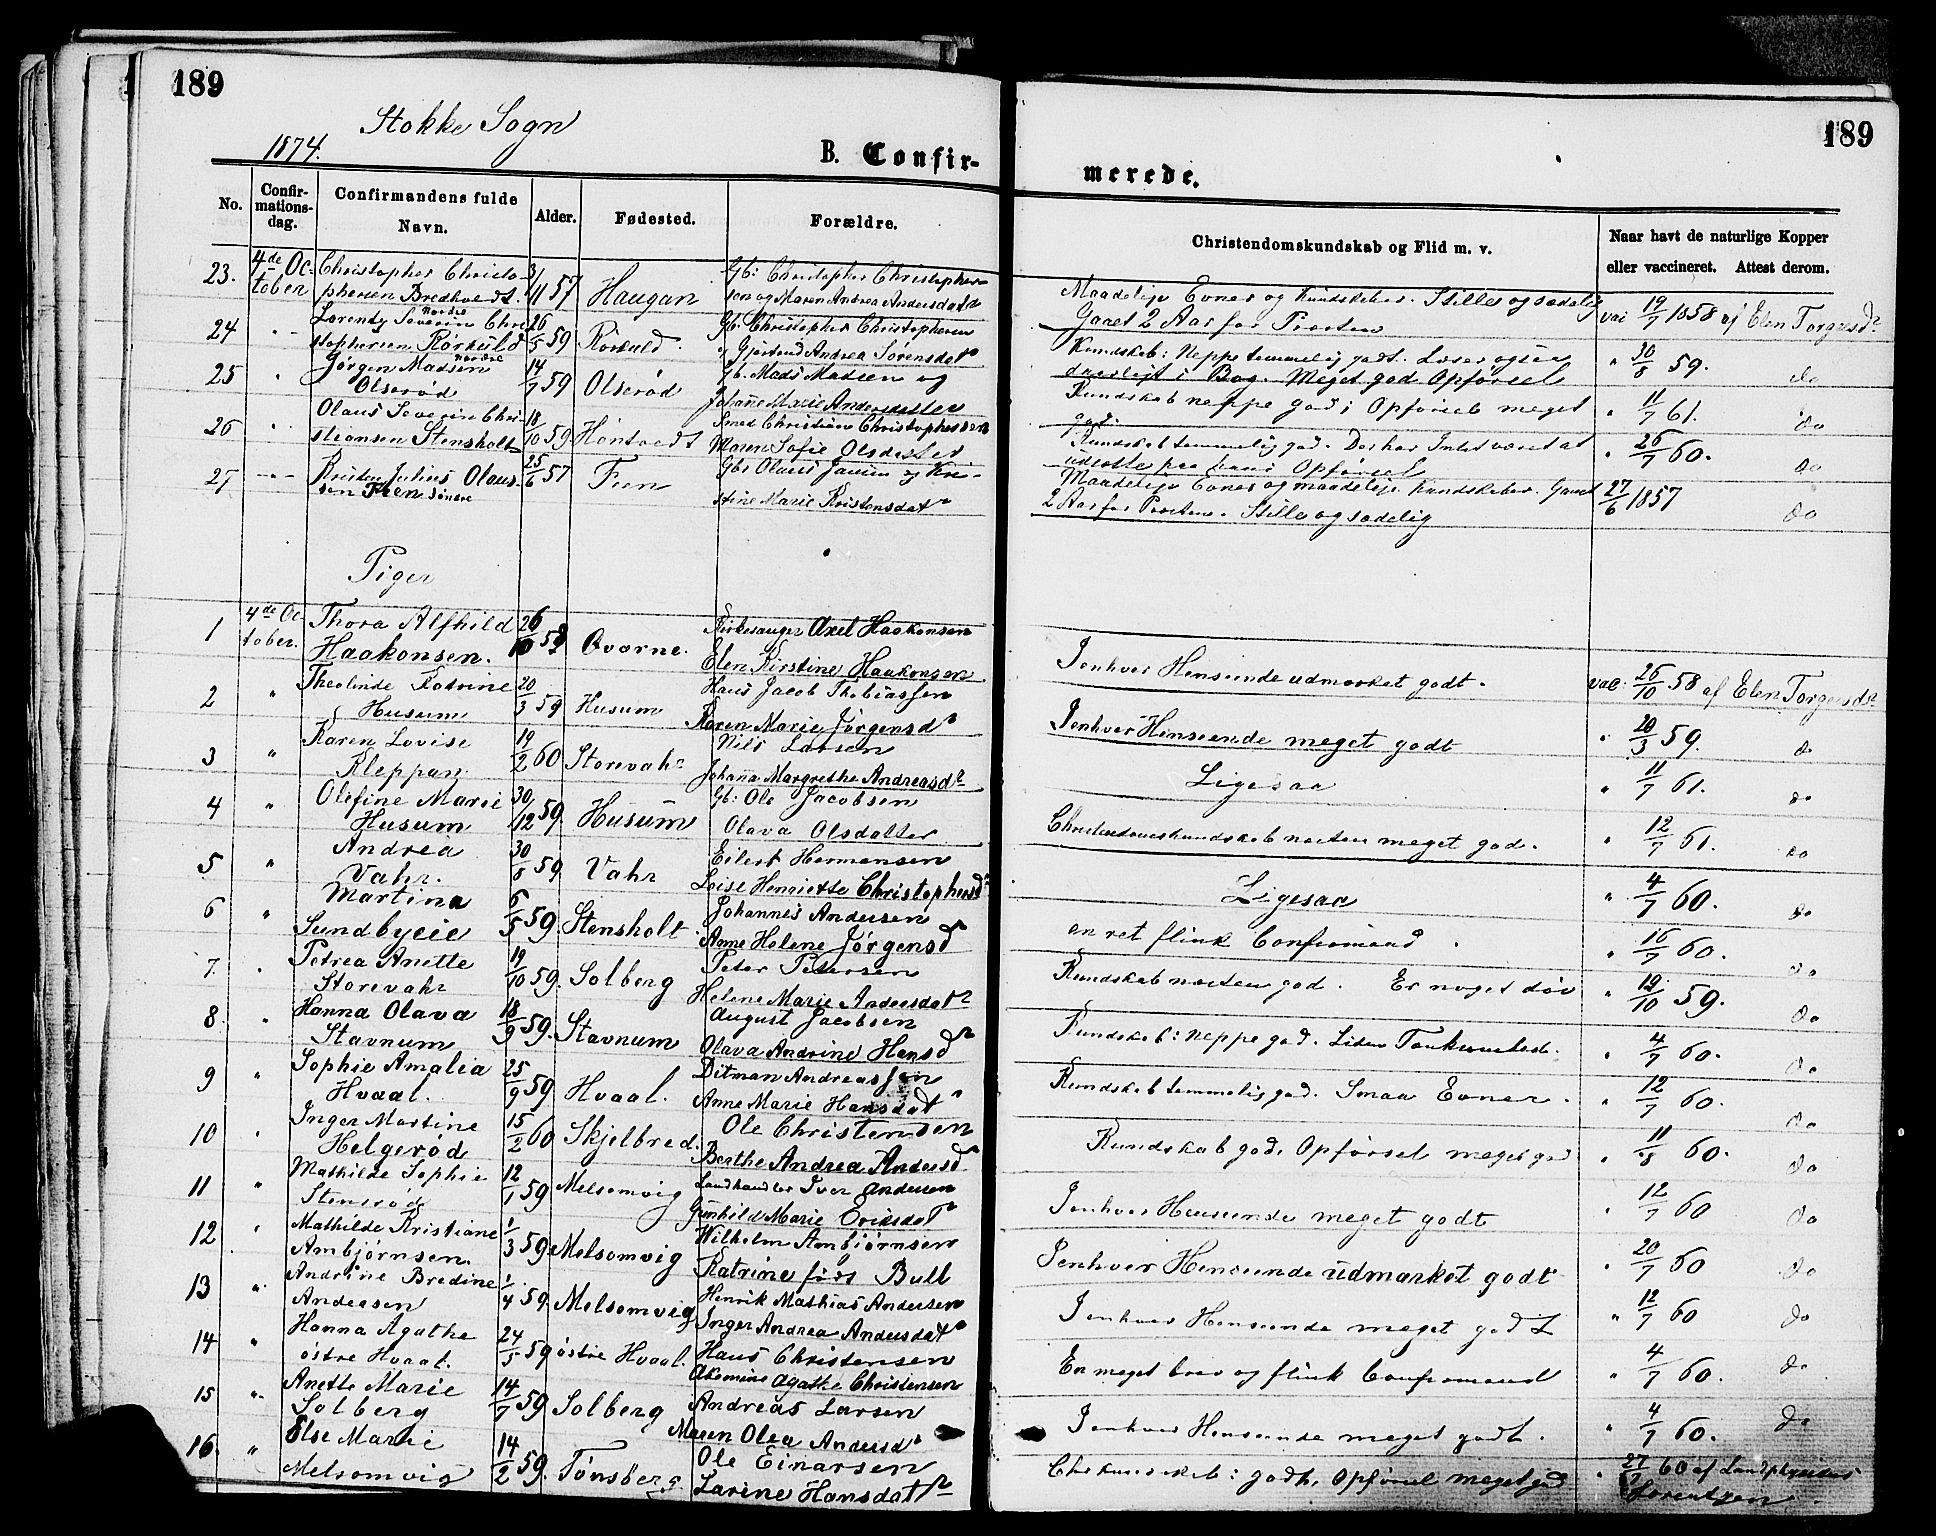 189
189
Stokke Sogn
1874.
B. Confir-
merede.
No.
Confir-
mations-
dag.
Confirmandens fulde
Navn.
Alder.
Fødested.
Forældre.
Christendomskundskab og Flid m. v.
Naar havt de naturlige Kopper
eller vaccineret. Attest derom.
23. 4de Oc- Christopher Christo- 3/11 57 Haugan Gb: Christopher Christopher-
tober phersen Bredhvedt. sen og Maren Andrea Andersdatr
Maadelige Evner og Kundskaber. Stille og sædelig
Gaaet 2 Aar for Præsten
vac 19/7 1858 af Elen Torgersdr
24 " Lorentz Severin Chri- 26/5 59 Rørkuld Gb. Christopher Christophersen
stophersen Rørkuld nordre og Gjertrud Andrea Sørensdatr
Kundskab: Neppe temmelig godt. Læser ogsaa
daarligt i Bog. Meget god Opførsel
" 30/8 59. do
25 " Jørgen Madsen 14/7 59 Olserød Gb. Mads Madsen og
Olserød nordre Johanne Marie Andersdatter
Kundskab neppe god; Opførsel meget
god.
" 11/7 61. do
26 " Olaus Severin Chri- 18/10 59 Hontvedt Smed Christian Christophersen
stiansen Stensholt Maren Sofie Olsdatter
Kundskab temmelig god. Der har Intet været at
udsætte paa hans Opførsel
" 26/7 60. do
27 " Julius Olaus- 25/6 57 Feen Gbr Olaus Jansen og Kri-
sen Feen søndre stine Marie Kristensdatr
Maadelige Evner og maadelige Kundskaber. Gaaet
2 Aar for Præsten. Stille og sædelig
27/6 1857 do
Piger
1 4de Oc- Thora Alfhild 26/10 58 Qvarne. Kirkesanger Axel Haakonsen
tober. Haakonsen. Elen Kirstine Haakonsen
I enhver Henseende udmærket godt.
vac. 26/10 58 af Elen Torgersdr
2 " Theolinde Katrine 20/3 59 Husum Hans Jacob Thobiassen
Husum Karen Marie Jørgensdr
I enhver Henseende meget godt
" 20/3 59. do
3 " Karen Lovise 19/2 60 Storevahr Nils Larsen
Kleppan. Johanna Margrethe Andreasdr
Ligesaa
" 11/7 61. do
4 " Olefine Marie 30/12 59. Husum Gb: Ole Jacobsen
Husum Olava Olsdatter
Christendomskundskab næsten meget god.
" 12/7 61. do
5 " Andrea 30/8 59 Vahr Eilert Hermansen
Vahr. Loise Henriette Christophersdr
Ligesaa
" 4/7 60. do
6 " Martina 6/5 59 Stensholt Johannes Andersen
Sundbyeie Anne Helene Jørgensd
en ret flink Confirmand.
" 16/7 60. do
7 " Petrea Anette 19/10 59. Solberg Peter Petersen
Storevahr Helene Marie Andersdatr
Kundskab næsten god. Er noget døv
" 19/10 59. do
8 " Hanna Olava 18/9 59. Stavnum August Jacobsen
Stavnum Olava Andrine Hansd
Kundskab: neppe god. Liden
" 4/7 60. do
9 " Sophie Amalia 25/9 59 Hvaal. Ditman Andreassen
Hvaal. Anne Marie Hansdatr
Kundskab temmelig god. Smaa Evner.
" 12/7 60. do
10 " Inger Martine 15/2 60 Skjelbred. Ole Christensen
Helgerød Berthe Andrea Andersd
Kundskab god. Opførsel meget god
" 11/8 60. do
11 " Mathilde Sophie 12/1 59 Melsomvig Landhandler Iver Andersen
Stensrød Gunhild Marie Eriksdatr
I enhver Henseende meget godt
" 12/7 60 do
12 " Mathilde Kristiane 1/3 59 Melsomvig Wilhelm Ambjørnsen
Ambjørnsen. Katrine født Bull
I enhver Henseende udmærket godt
" 20/7 60 do
13 " Andrine Bredine 1/4 59. Melsomvig Henrik Mathias Andersen
Andersen Inger Andrea Andersdatr
I enhver Henseende meget godt
" 12/7 60 do
14 " Hanna Agathe 24/5 59 østre Hvaal. Hans Christensen
østre Hvaal. Agathe Christensen
En meget brav og flink Confirmand
" 4/7 60. do
15 " Anette Marie 14/7 59 Solberg Andreas Larsen
Solberg Maren Olea Andersdr
I enhver Henseende meget godt.
" 4/7 60. do
16. " Else Marie 14/2 59. Tønsberg Ole Einarsen
Melsomvig Larine Hansdatr
Chr Kundskab: godt. Opførsel meget god
" 27/7 60 af Landphysicus
Lorentzen